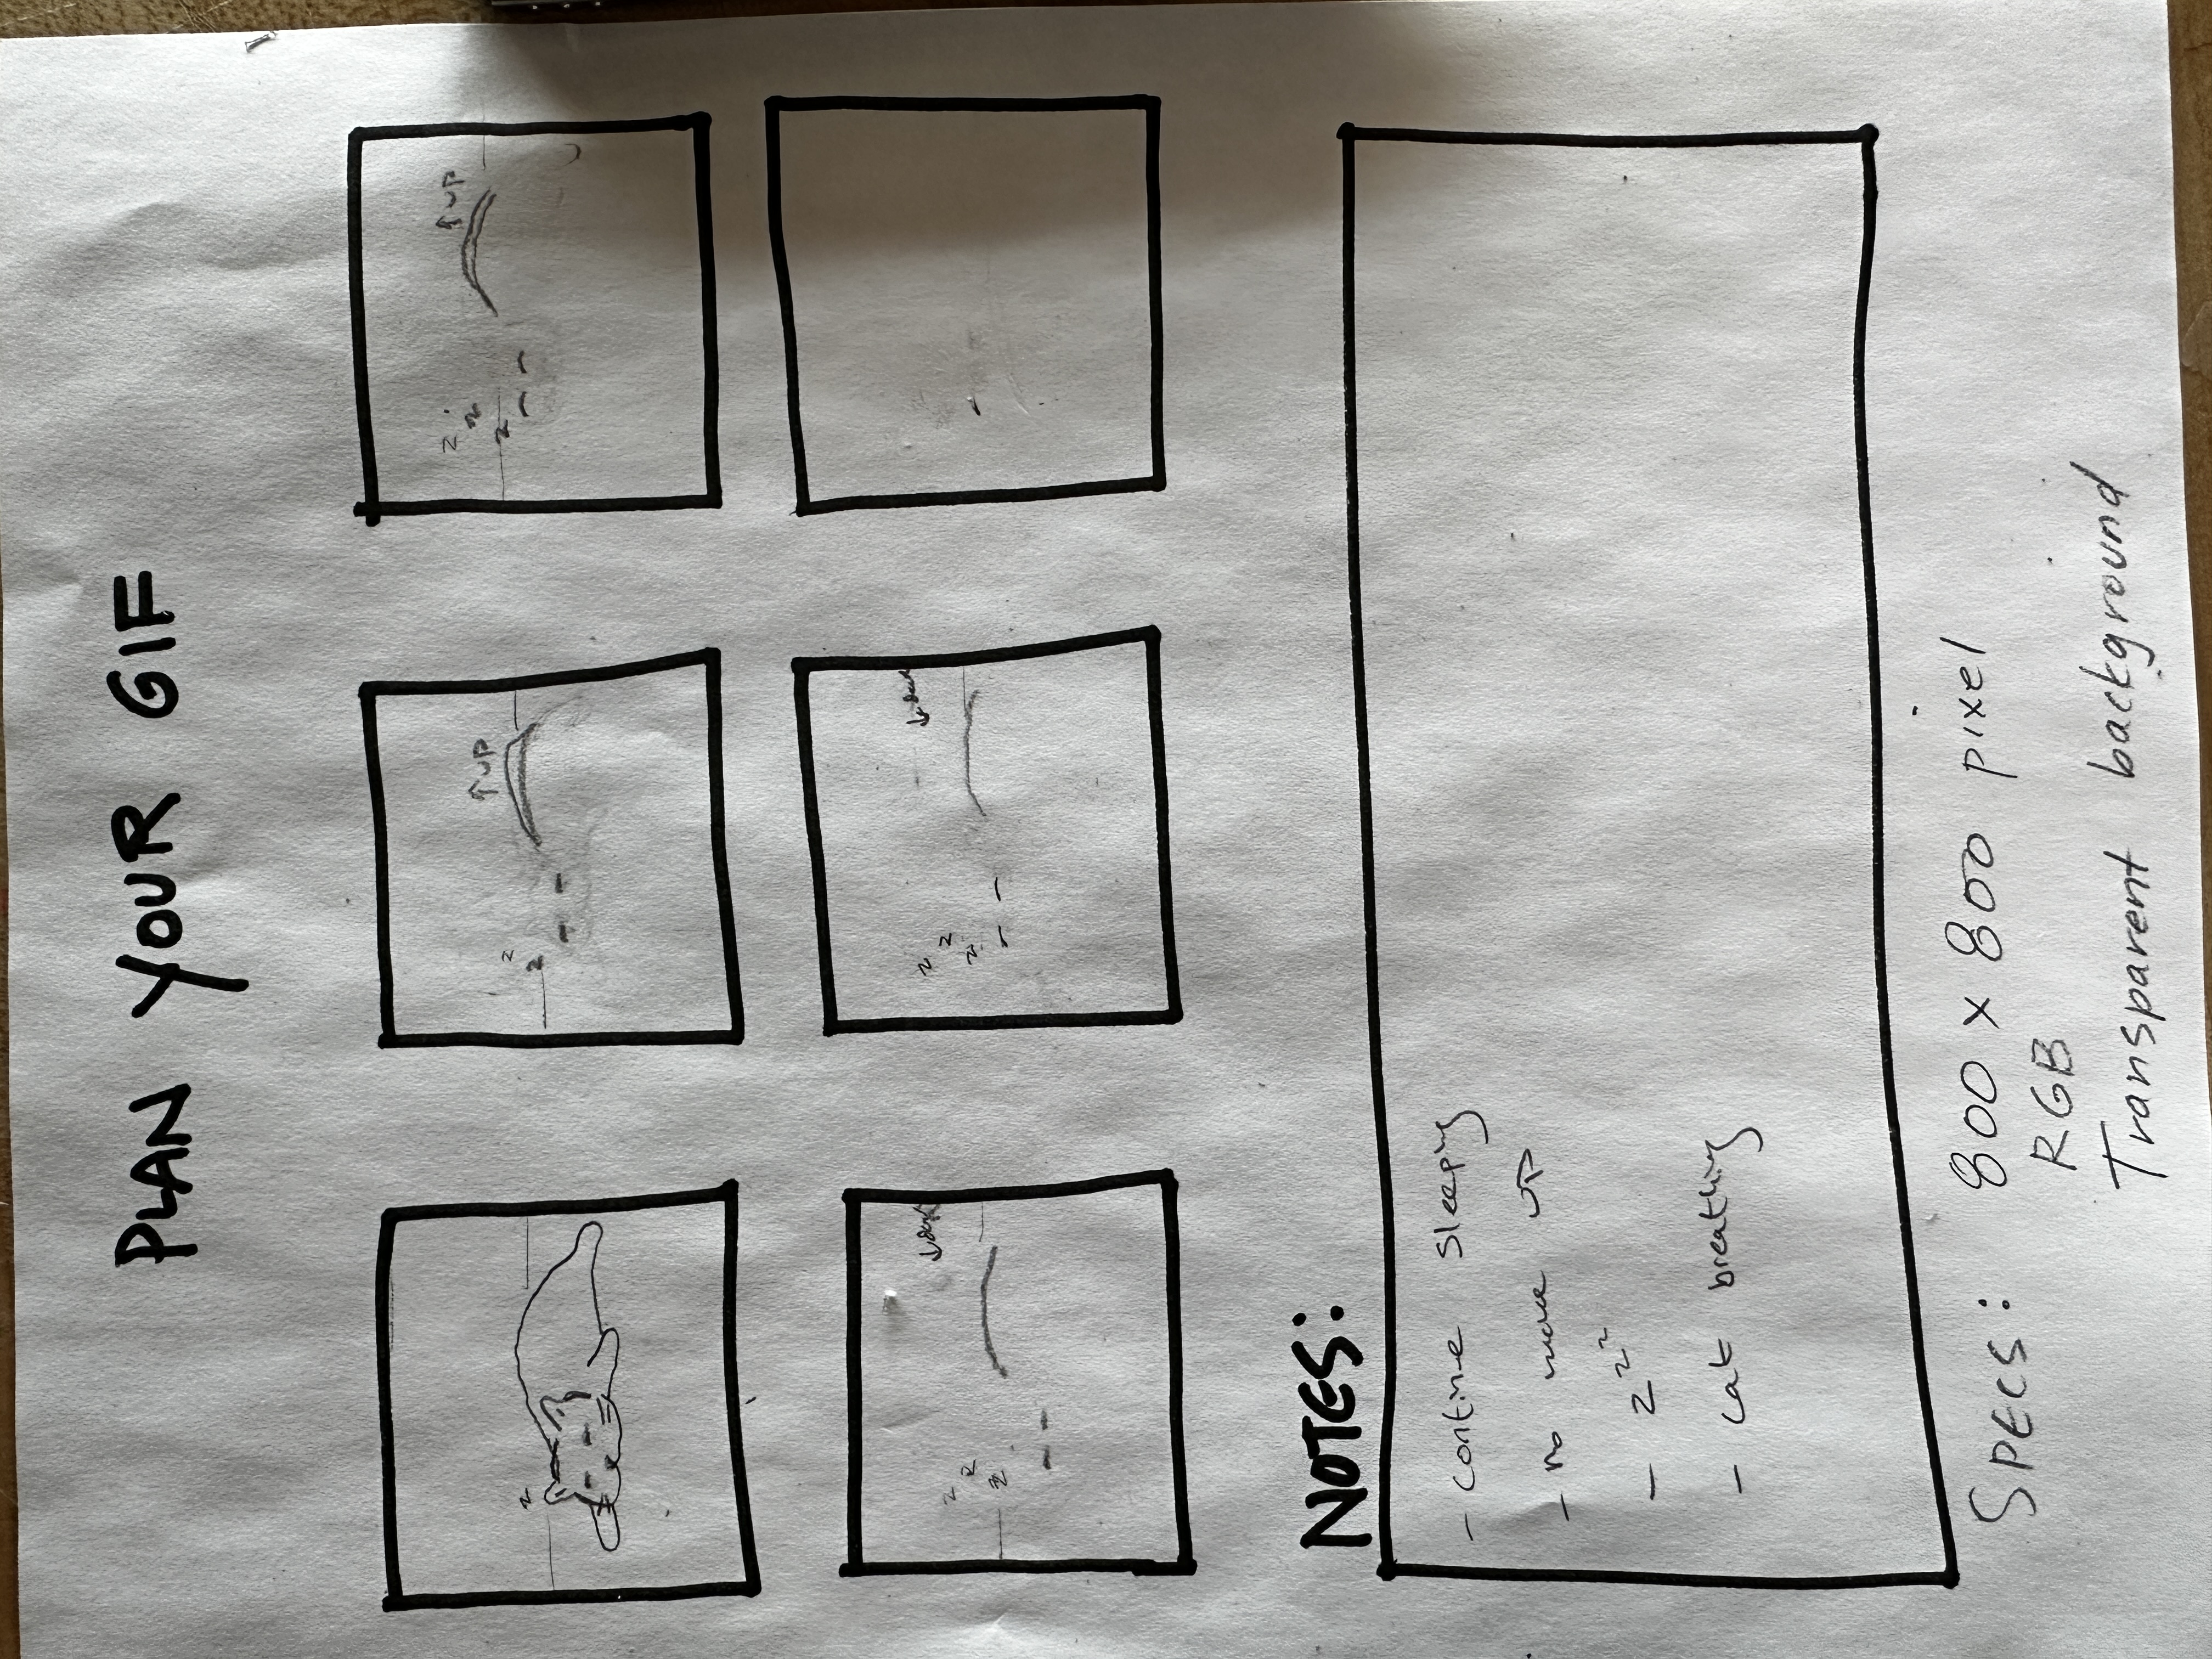 PLAN YOUR GIF
z
↑ UP
z
z
↑ UP
z
z
z
↓
z
z
z
↓
z
z
z
NOTES:
- continue sleeping
- no wake UP
- z z z
- cat breathing
SPECS: 800 x 800 pixel
RGB
Transparent background